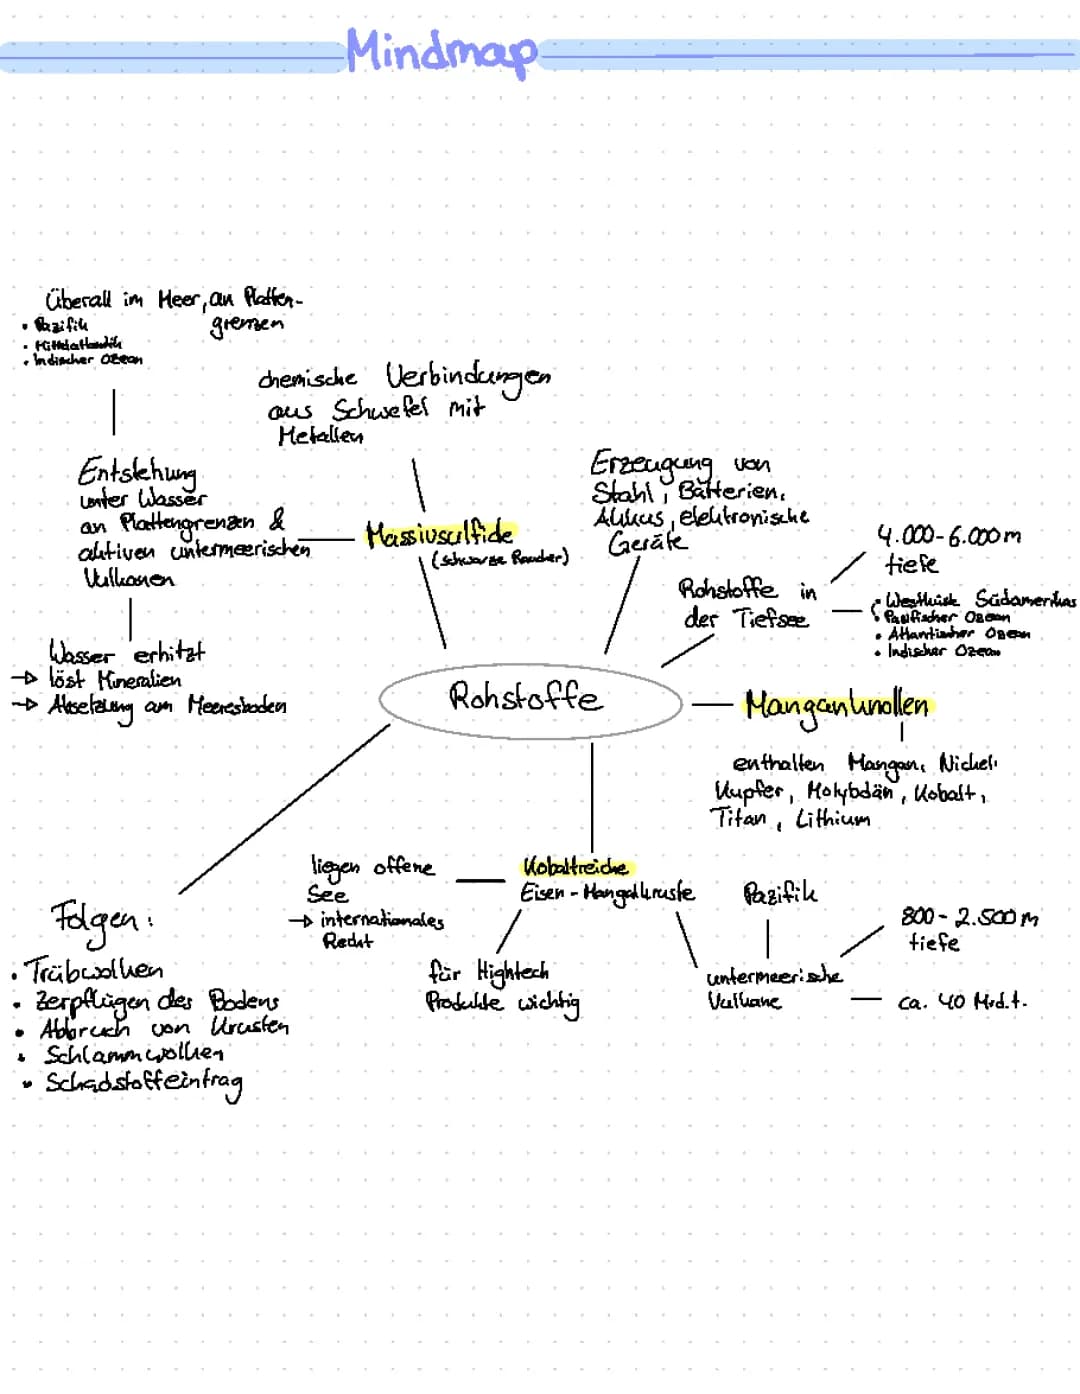 Mindmap
Überall im Meer, an Platten-
grenzen
• Pazifik
• Mittelatlantik
• Indischer Ozean
chemische Verbindungen
aus Schwefel mit
Metallen
Entstehung
unter Wasser
an Plattengrenzen &
aktiven untermeerischen
Vulkanen
Massivsulfide
(schwarze Raucher)
Erzeugung von
Stahl, Batterien,
Akkus, elektronische
Geräte
Rohstoffe in
der Tiefsee
4.000-6.000m
tiefe
• Westküste Südamerikas
• Pazifischer Ozean
• Atlantischer Ozean
• Indischer Ozean
Wasser erhitzt
→ löst Mineralien
→ Absetzung am Meeresboden
Rohstoffe
Manganknollen
enthalten Mangan, Nickel,
Kupfer, Molybdän, Kobalt,
Titan, Lithium
liegen offene
See
→ internationales
Recht
Kobaltreiche
Eisen-Mangankruste
für Hightech
Produkte wichtig
Pazifik
untermeerische
Vulkane
800-2.500m
tiefe
ca. 40 Mrd.t.
Folgen:
• Trübwolken
• Zerpflügen des Bodens
• Abbruch von Krusten
• Schlammwolken
• Schadstoffeintrag